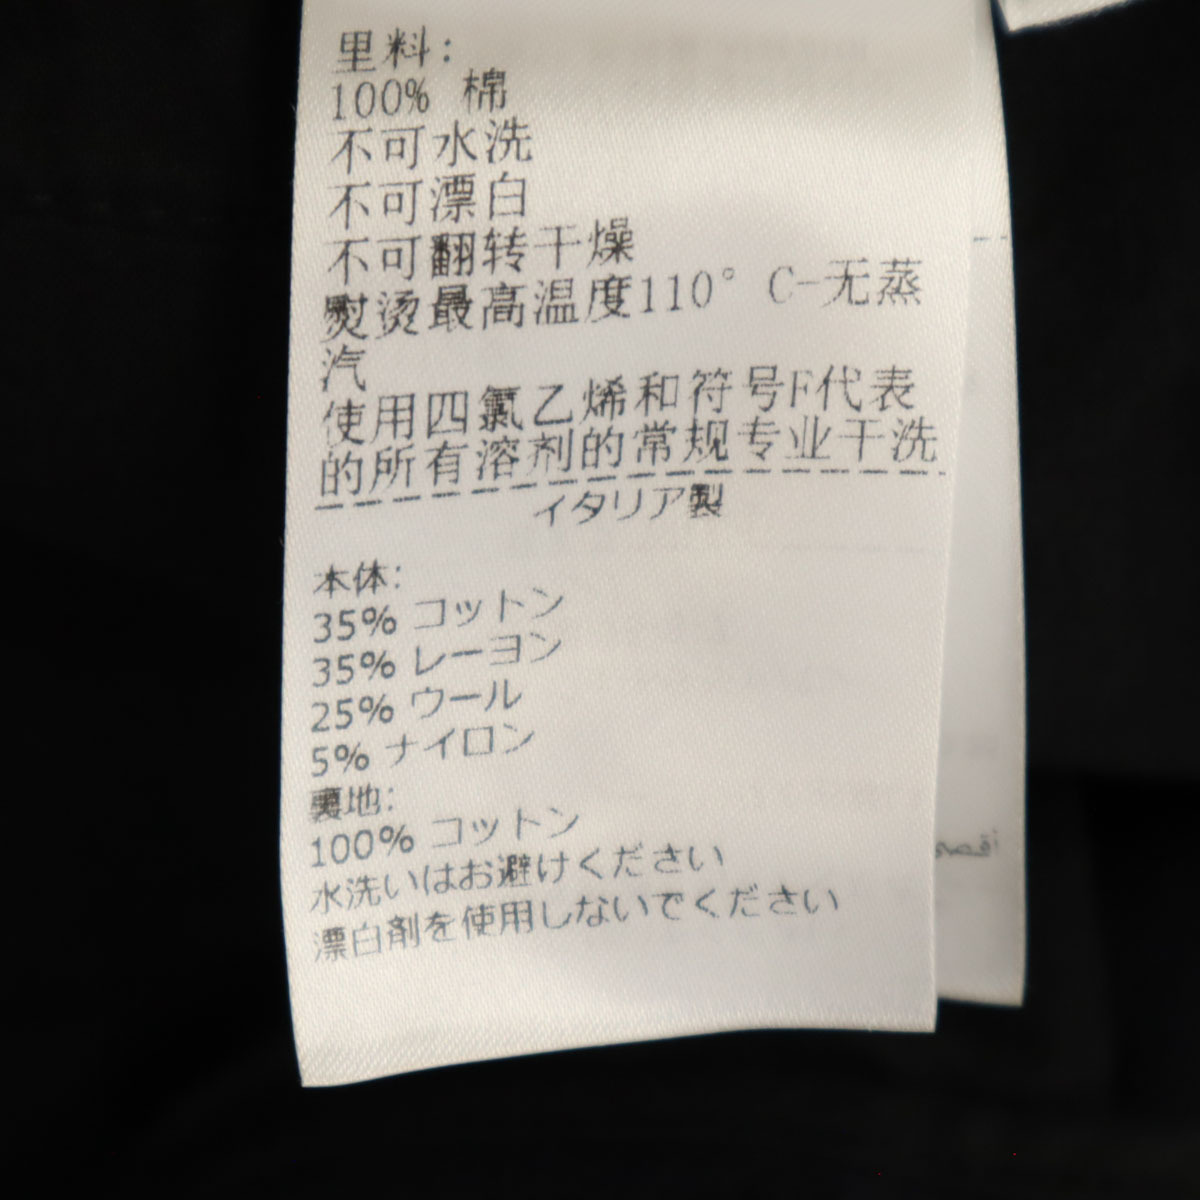 里料:
100% 棉
不可水洗
不可漂白
不可翻转干燥
熨烫最高温度110° C-无蒸
汽
使用四氯乙烯和符号F代表
的所有溶剂的常规专业干洗
イタリア製
本体:
35% コットン
35% レーヨン
25% ウール
5% ナイロン
裏地:
100% コットン
水洗いはお避けください
漂白剤を使用しないでください